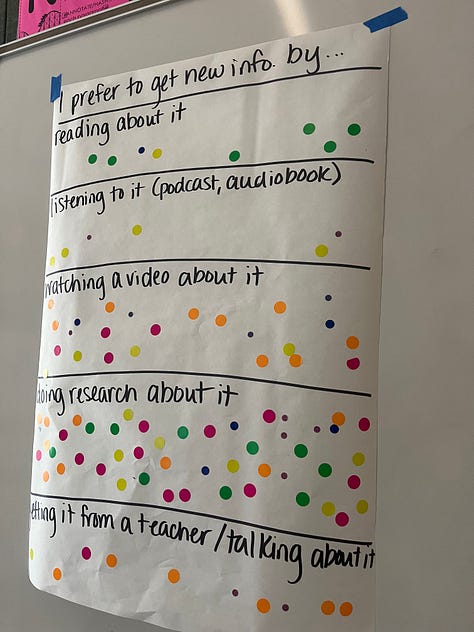 I prefer to get new info. by...
reading about it
listening to it (podcast, audiobook)
watching a video about it
doing research about it
getting it from a teacher/talking about it